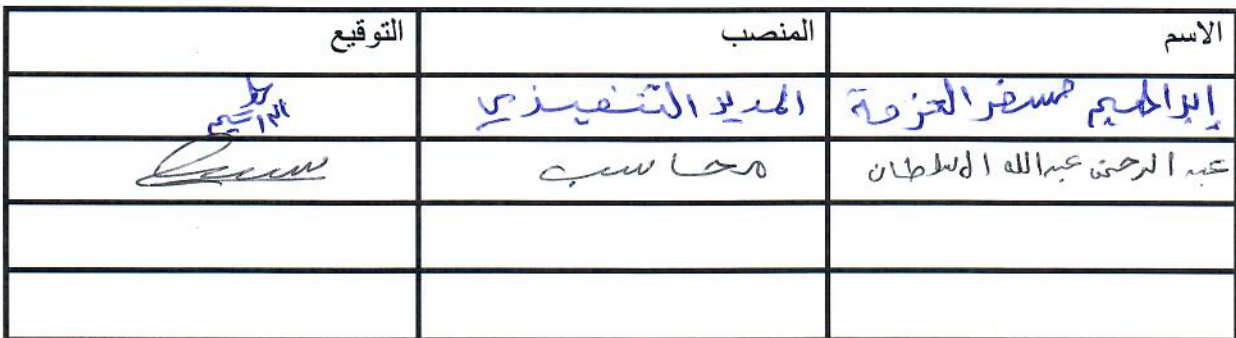 الاسم المنصب التوقيع
إبراهيم مسفر العزمة المدير التنفيذي
عبد الرحمن عبدالله السلطان محاسب